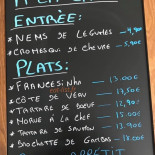 ENTRÉE:
* NEMS DE LEGUMES — 4,90€
* CROMESQUI DE CHEVRE — 5,90€
PLATS:
* FRANCESINHA — 13.00€
* CÔTE DE VEAU — 17,50€
* TARTARE DE BOEUF — 12,90€
* MORUE À LA CHEF — 15.00€
* TARTARE DE SAUMON — 13.90€
* BROCHETTE DE GAMBAS — 18.00€
APPETIT